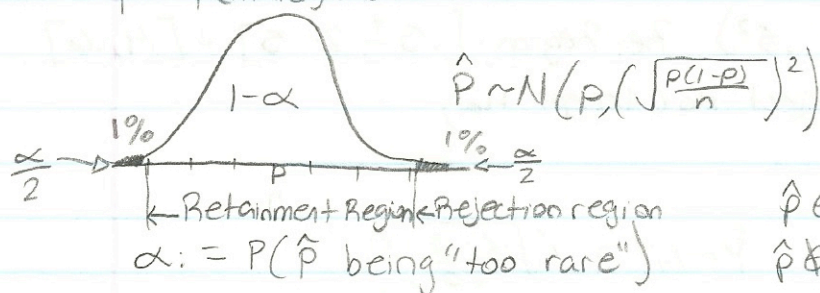 1-α
P̂ ~ N(p, (√(p(1-p)/n))²)
1% 1%
α/2 → ← α/2
p
←Retainment Region|←Rejection region
p̂ ∈
α := P(p̂ being "too rare") p̂ ∉